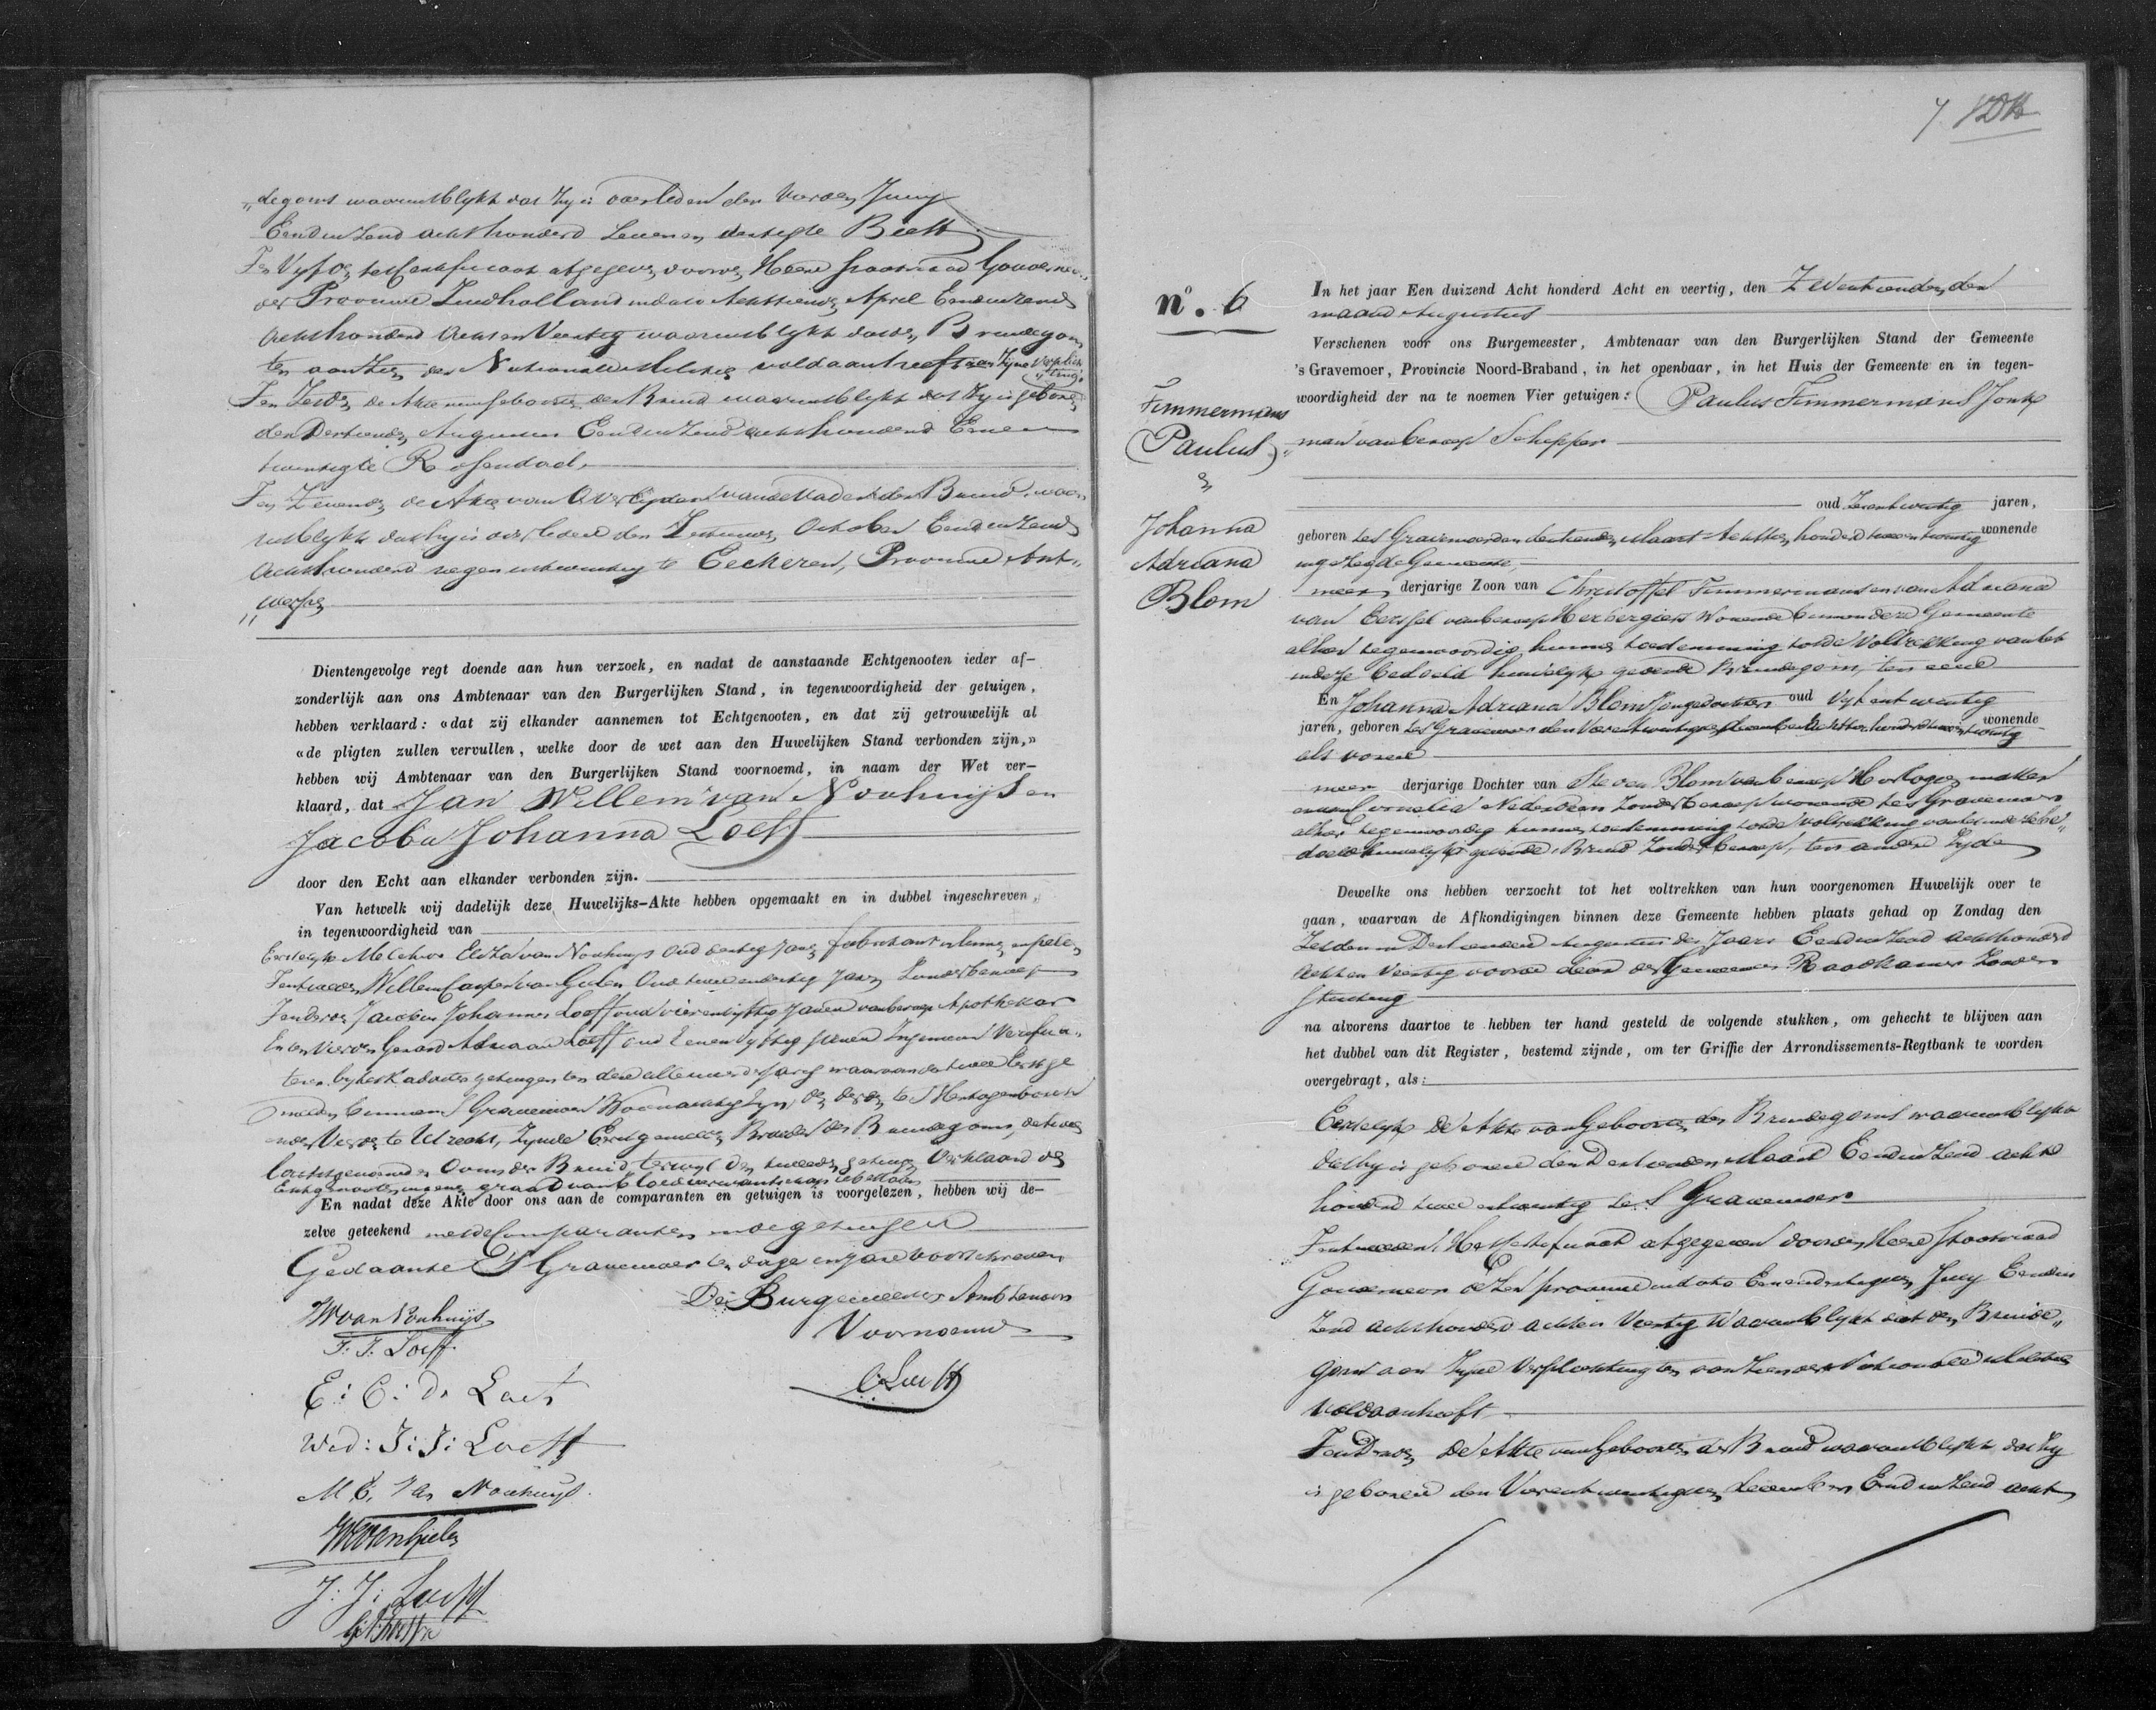 „degoms waaruitblykt dat hy is overleden den Vierden Juny
Eenduizend achthonderd Zeven en dertig te Breda
Ten Vyfde, het Certificaat afgegeven door den Heere Staatsraad Gouverneur
der Provincie Zuidholland in dato Achttiende April Eenduizend
Achthonderd Acht en Veertig waaruitblykt dat de Bruidegom
ten aanzien der Nationale Militie voldaan heeft aan zyne verplich„
„ting.
Ten Zesde, de Akte van Geboorte der Bruid waaruitblykt dat Zy is geboren
den Dertienden Augustus Eenduizend achthonderd Een en
twintig te Rosendaal.
Ten Zevende, de Akte van Overlyden van de Vader der Bruid, waar
uitblykt dat hy is overleden den October Eenduizend
Achthonderd negen en twintig te Eeckeren, Provincie Ant„
„werpen
Dientengevolge regt doende aan hun verzoek, en nadat de aanstaande Echtgenooten ieder af-
zonderlijk aan ons Ambtenaar van den Burgerlijken Stand, in tegenwoordigheid der getuigen,
hebben verklaard: «dat zij elkander aannemen tot Echtgenooten, en dat zij getrouwelijk al
«de pligten zullen vervullen, welke door de wet aan den Huwelijken Stand verbonden zijn,»
hebben wij Ambtenaar van den Burgerlijken Stand voornoemd, in naam der Wet ver-
klaard, dat Jan Willem van Noohuijs en
Jacoba Johanna Loeff
door den Echt aan elkander verbonden zijn.
Van hetwelk wij dadelijk deze Huwelijks-Akte hebben opgemaakt en in dubbel ingeschreven,
in tegenwoordigheid van
Eerstelyk Melchior Eliza van Noohuys Oud dertig Jaren fabrikant
Ten tweede, Willem Casper van Gulen Oud twee en dertig Jaren Zonder beroep
Ten derde, Jacobus Johannes Loeff oud vier en vyftig Jaren van beroep Apotheker
En ten Vierde, Gerard Adriaan Loeff oud Zeven en vyftig Jaren Ingenieur Verifica„
teur by het Kadaster getuigen ten deze allen meerderjarig waarvan de twee eerst ge
melden binnen S Gravemoer Woonachtig zyn, de derde te S Hertogenbosch
en de Vierde te Utrecht, zynde Eerstgemelde Broeder der Bruidegoms, de twee
laatstgenoemden Ooms der Bruid, terwyl de tweede getuige Verklaard de
Echtgenooten in geene graad van bloedverwantschap te bestaan
En nadat deze Akte door ons aan de comparanten en getuigen is voorgelezen, hebben wij de-
zelve geteekend met de Comparanten en de getuigen
Gedaan te S Gravemoer ten dage en jare voorschreven
De Burgemeester Ambtenaar
Voornoemd
JW van Noohuijs
J. J. Loeff.
E: C: De Laet
Wed: J: J: Loeff
M E. van Noohuys.
J: J: Loeff
C. Loeff
7.
nº. 6
Timmermans
(Paulus)
&
Johanna
Adriana
Blom
In het jaar Een duizend Acht honderd Acht en veertig, den Zeventienden der
maand Augustus
Verschenen voor ons Burgemeester, Ambtenaar van den Burgerlijken Stand der Gemeente
's Gravemoer, Provincie Noord-Braband, in het openbaar, in het Huis der Gemeente en in tegen-
woordigheid der na te noemen Vier getuigen: Paulus Timmermans Jonk
„man van beroep Schipper
oud Zesentwintig jaren,
geboren te S Gravemoer den dertienden Maart Achttien honderd twee en twintig wonende
in gezegde Gemeente,
meer derjarige Zoon van Christoffel Timmermans en van Adriana
van Eersel van beroep Herbergiers Wonende binnen deze Gemeente
alhier tegenwoordig hunne toestemming tot de Voltrekking van het
in deze bedoeld huwelyk gevende Bruidegom, ter eene
En Johanna Adriana Blom Jongedochter oud Vyf en twintig
jaren, geboren te S Gravemoer den Vierentwintigste December Achttien honderd twee en twintig wonende
als voren
meer derjarige Dochter van Steven Blom van beroep Horlogie maker
en van Cornelia Nederveen zonder beroep wonende te S Gravemoer
alhier tegenwoordig hunne toestemming tot de voltrekking van het in deze be„
doeld huwelyk gevende, Bruid zonder beroep, ter andere Zyde
Dewelke ons hebben verzocht tot het voltrekken van hun voorgenomen Huwelijk over te
gaan, waarvan de Afkondigingen binnen deze Gemeente hebben plaats gehad op Zondag den
Zesden en Dertienden Augustus des Jaars Eenduizend achthonderd
Acht en Veertig voor de deur der Gemeente Raadkamer Zonder
Stuiting
na alvorens daartoe te hebben ter hand gesteld de volgende stukken, om gehecht te blijven aan
het dubbel van dit Register, bestemd zijnde, om ter Griffie der Arrondissements-Regtbank te worden
overgebragt, als:
Eerstelyk De Akte van Geboorte des Bruidegoms waaruitblykt
dat hy is geboren den Dertienden Maart Eenduizend acht
honderd twee en twintig te S Gravemoer
Ten tweede, Het Certificaat afgegeven door den Heere Staatsraad
Gouverneur dezer provincie in dato Een en dertigsten July Eendui
zend achthonderd acht en Veertig Waaruitblykt dat den Bruide„
gom aan zyne Verplichting ten aanzien der Nationale Militie
voldaan heeft
Ten Derde, De Akte van Geboorte der Bruid waaruitblykt dat Zy
is geboren den Vierentwintigsten December Eenduizend acht